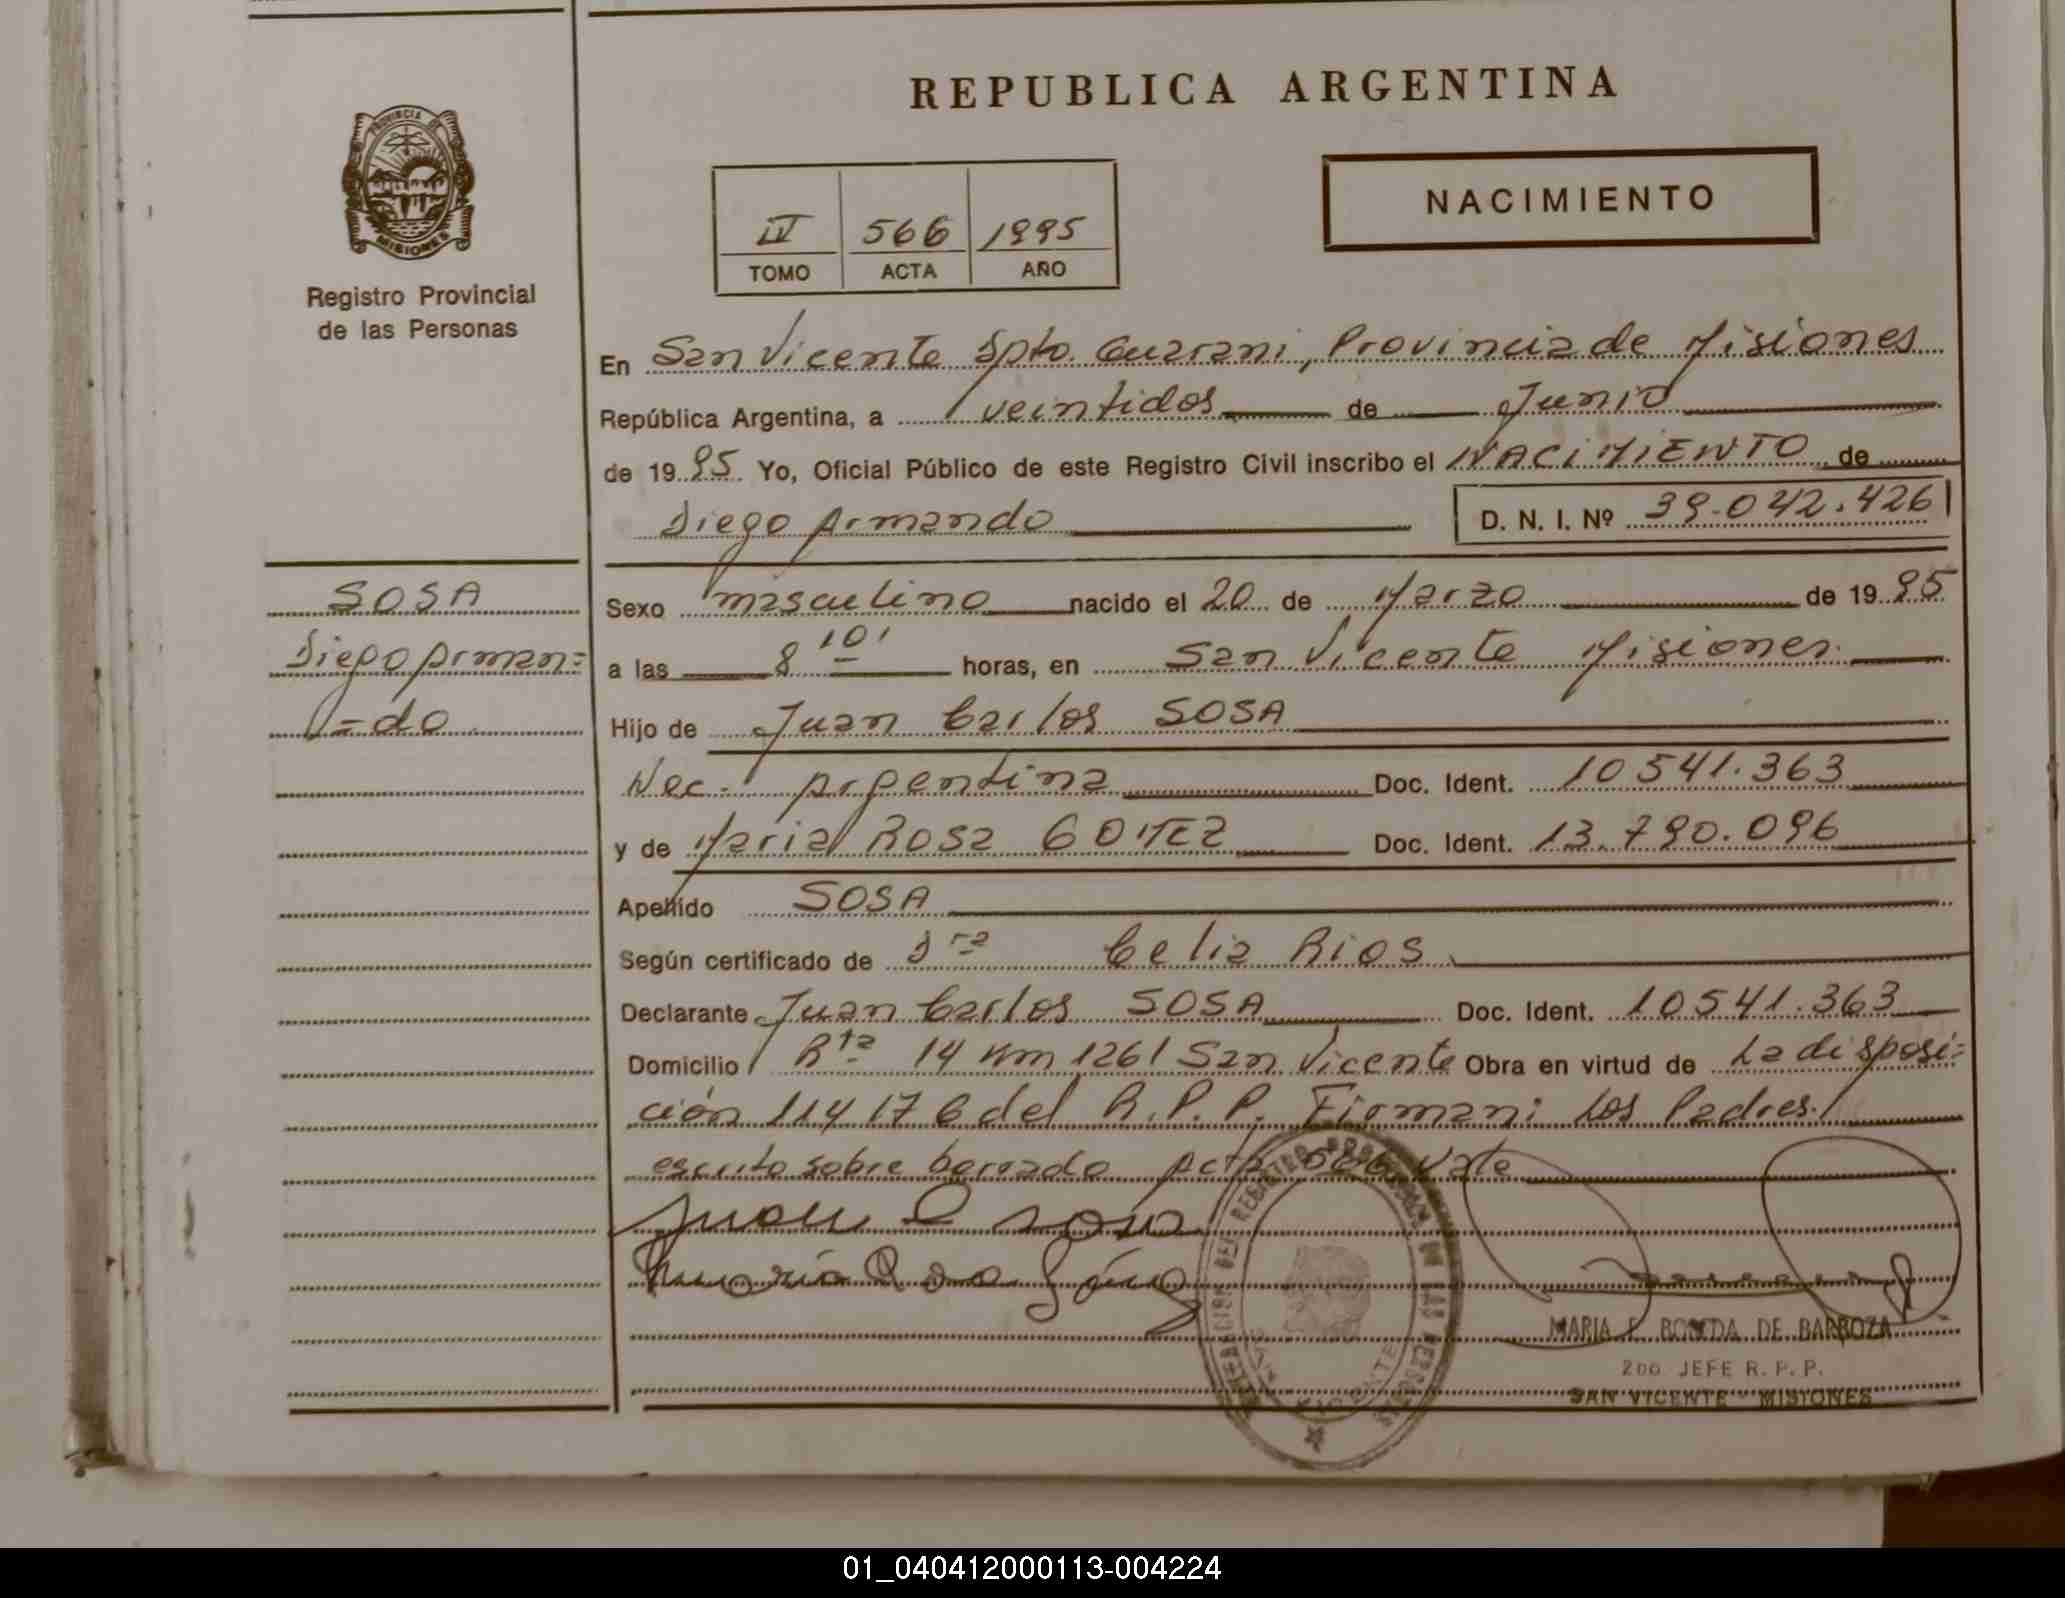 REPUBLICA ARGENTINA
PROVINCIA DE
MISIONES
Registro Provincial
de las Personas
NACIMIENTO
566 1995
TOMO ACTA AÑO
En San Vicente Dpto. Guarani, Provincia de Misiones
República Argentina, a veintidos de Junio
de 1995 Yo, Oficial Público de este Registro Civil inscribo el NACIMIENTO de
Diego Armando D. N. I. Nº 39.042.426
SOSA
Diego Arman=
=do
Sexo masculino nacido el 20 de Marzo de 1995
a las 8 10' horas, en San Vicente Misiones.
Hijo de Juan Carlos SOSA
Nac. Argentina Doc. Ident. 10541.363
y de Maria Rosa GOMEZ Doc. Ident. 13.790.096
Apellido SOSA
Según certificado de Dra Celia Rios
Declarante Juan Carlos SOSA Doc. Ident. 10541.363
Domicilio Rta 14 Km 1261 San Vicente Obra en virtud de La disposi=
ción 114/76 del R.P.P. Firman: Los Padres.
escrito sobre borrado Acta 566 vale
Juan C Sosa
Maria Rosa Gómez
MARIA E. DE BARBOZA
2DO JEFE R. P. P.
SAN VICENTE - MISIONES
01_040412000113-004224